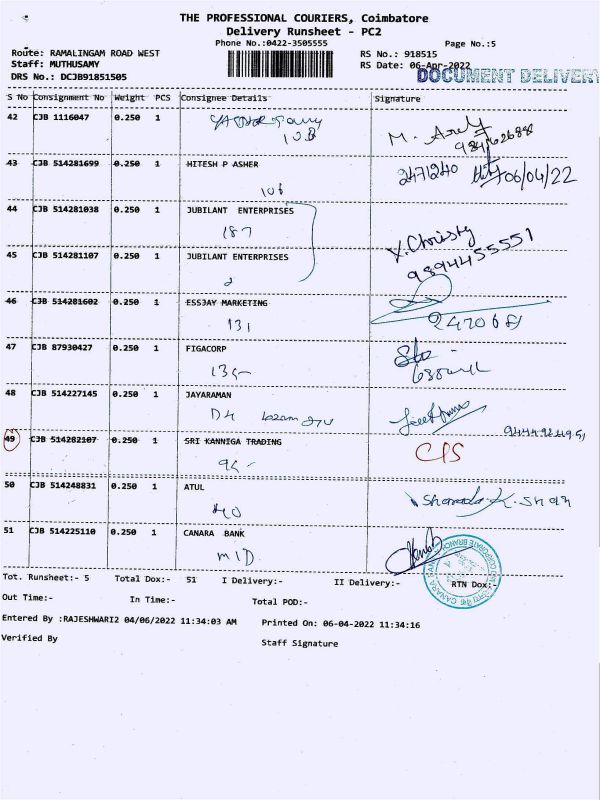 THE PROFESSIONAL COURIERS, Coimbatore
Delivery Runsheet - PC2
Phone No.:0422-3505555
Page No.:5
Route: RAMALINGAM ROAD WEST
RS No.: 918515
Staff: MUTHUSAMY
RS Date: 06-Apr-2022
DRS No.: DCJB91851505
DOCUMENT DELIVERY
S No Consignment No Weight PCS Consignee Details Signature
42 CJB 1116047 0.250 1
108
43 CJB 514281699 0.250 1 HITESH P ASHER
2471240 06/04/22
106
44 CJB 514281038 0.250 1 JUBILANT ENTERPRISES
187
45 CJB 514281107 0.250 1 JUBILANT ENTERPRISES
Y. Christy
9894455551
2
46 CJB 514281602 0.250 1 ESSJAY MARKETING
131
47 CJB 87930427 0.250 1 FIGACORP
135-
48 CJB 514227145 0.250 1 JAYARAMAN
D4
49 CJB 514282107 0.250 1 SRI KANNIGA TRADING
95 -
50 CJB 514248831 0.250 1 ATUL
Sharada K. Shah
40
51 CJB 514225110 0.250 1 CANARA BANK
MID
Tot. Runsheet:- 5 Total Dox:- 51 I Delivery:- II Delivery:- RTN Dox:-
Out Time:- In Time:- Total POD:-
Entered By :RAJESHWARI2 04/06/2022 11:34:03 AM Printed On: 06-04-2022 11:34:16
Verified By Staff Signature